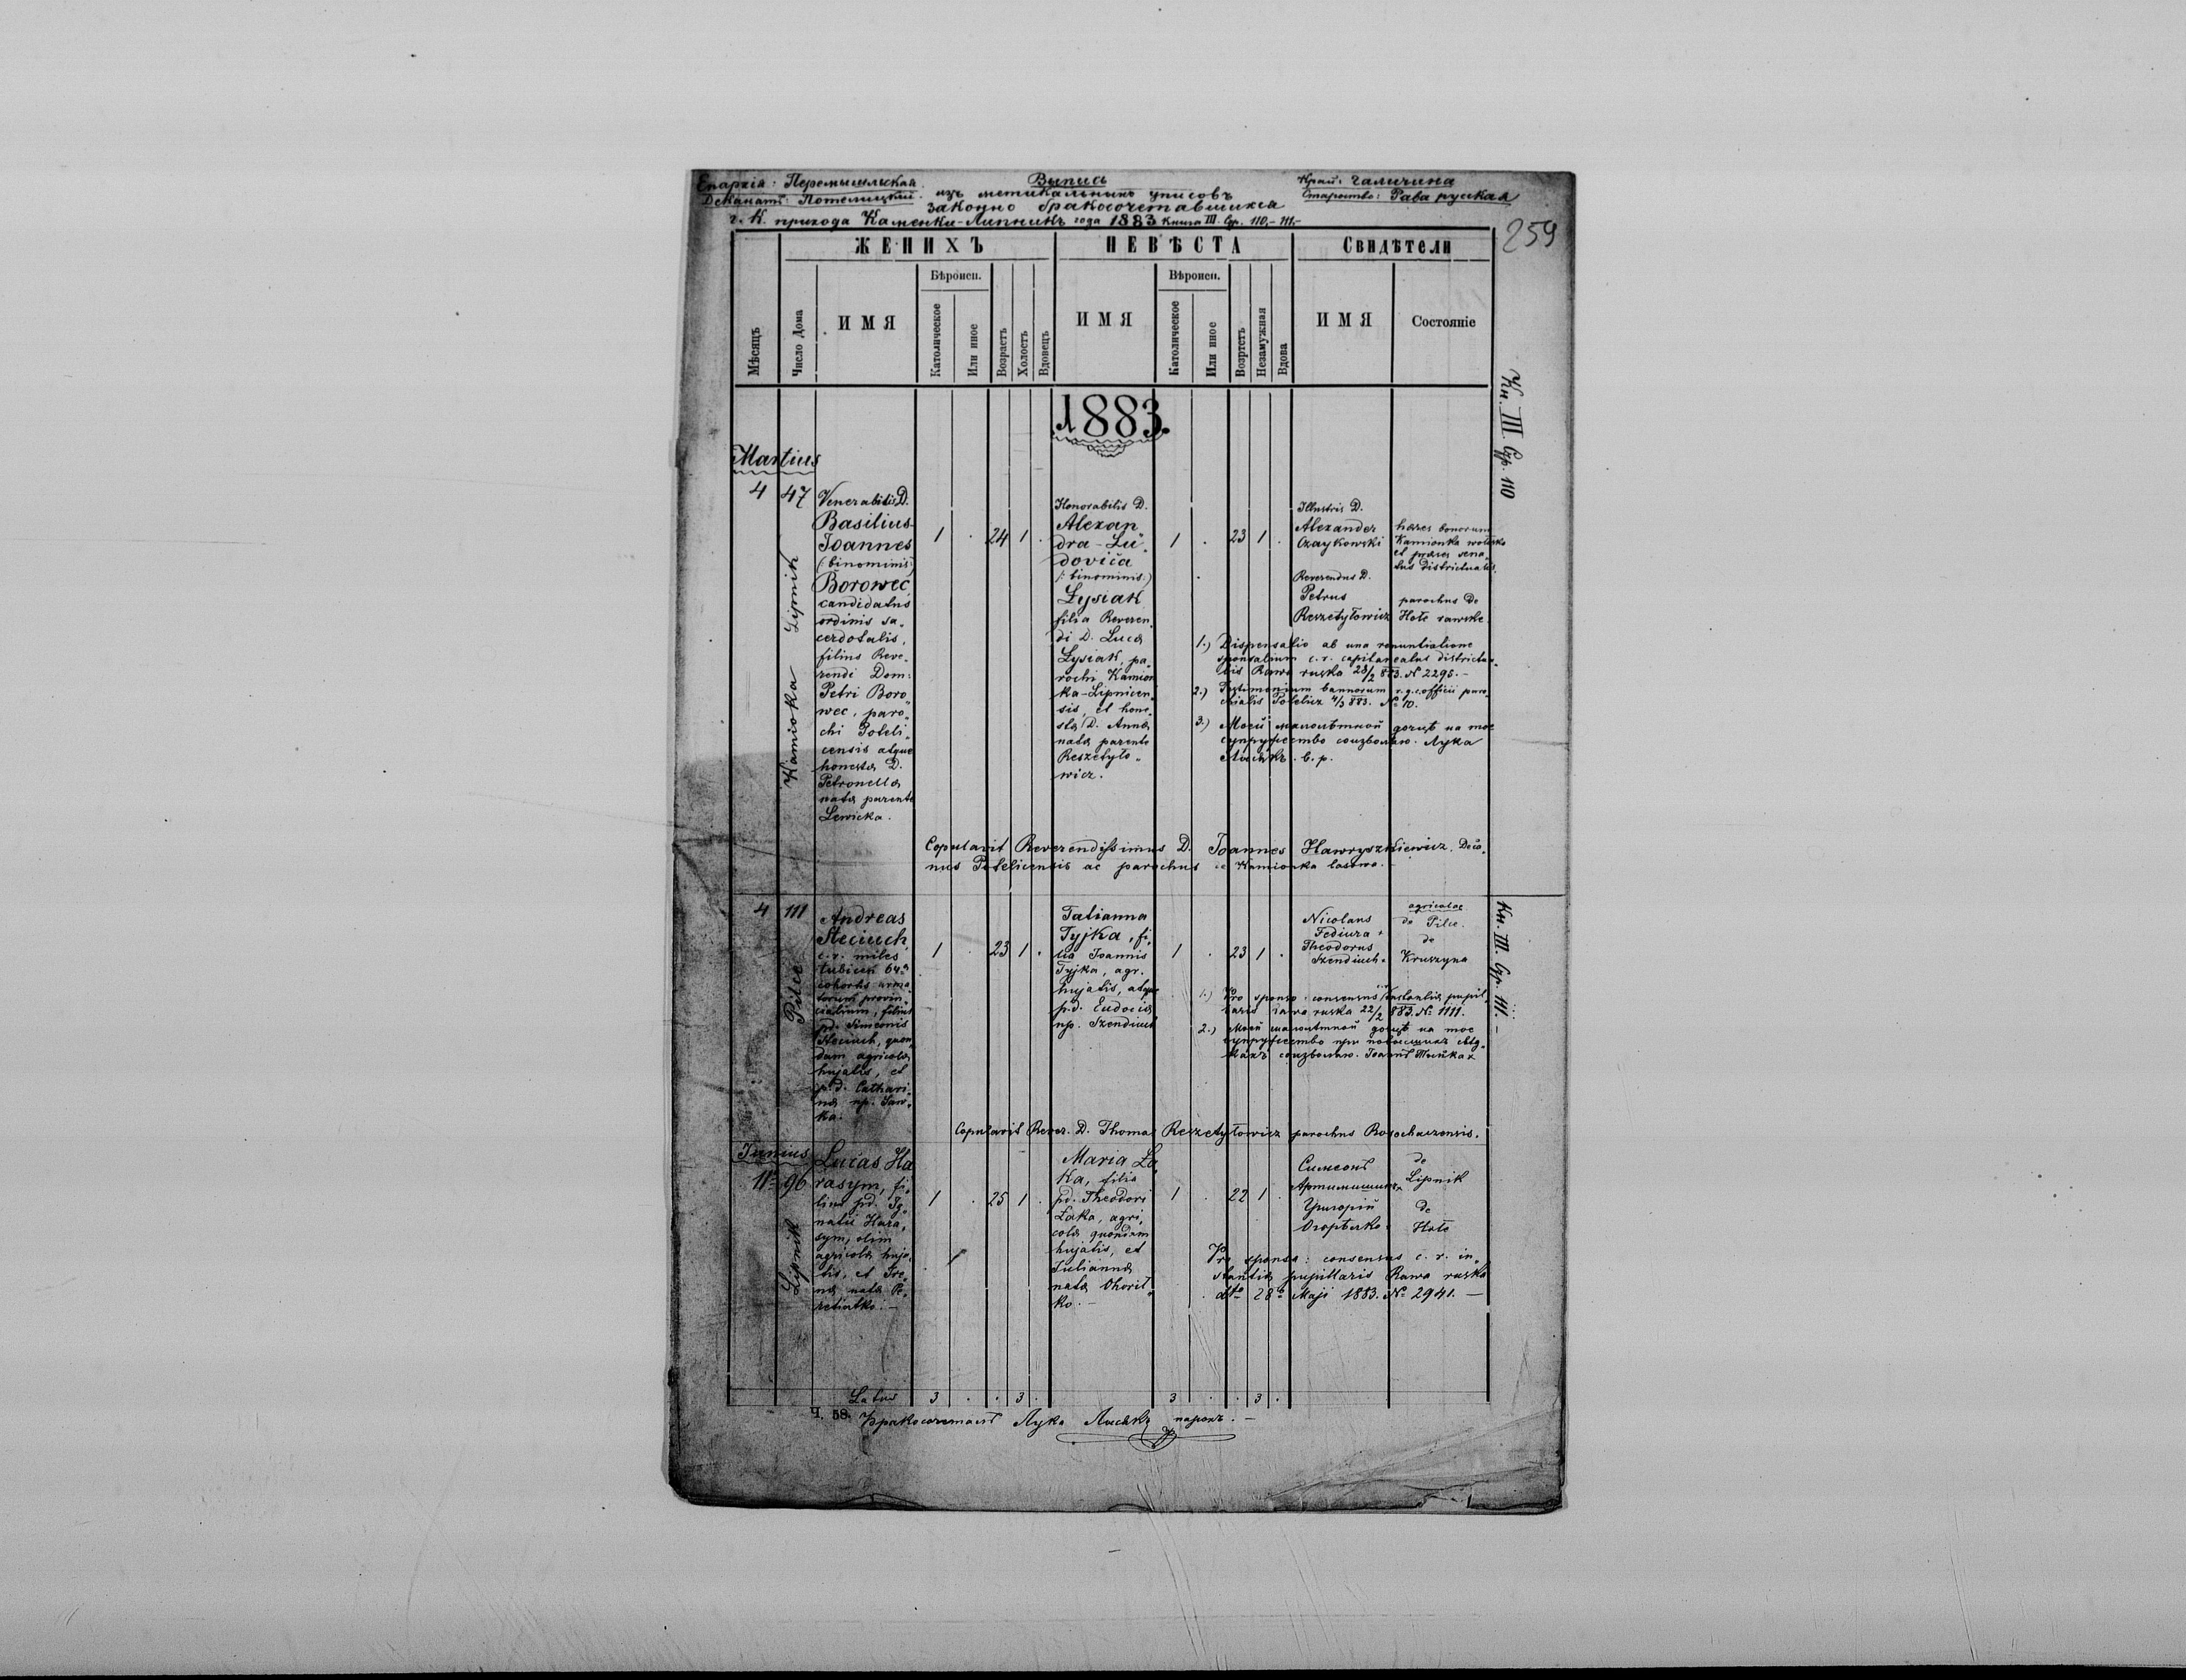 Епархія: Перемышльская
Деканатъ: Потелицкій
Выписъ
изъ метикальныхъ уписовъ
законно бракосочетавшихся
Край: Галичина
Староство: Рава русская
г. к. прихода Каменки-Липникъ года 1883 Книга III. Стр. 110,- 111.-
259
ЖЕНИХЪ
НЕВѢСТА
Свидѣтели
Мѣсяцъ
Число Дома
ИМЯ
Бѣроисп.
Католическое
Или иное
Возрастъ
Холостъ
Вдовецъ
ИМЯ
Вѣроисп.
Католическое
Или иное
Возртстъ
Незамужная
Вдова
ИМЯ
Состояніе
1883.
Кн. III Стр. 110
Martius
4
47
Kamionka Lipnik
Venerabilis D.
Basilius
Joannes
(: binominis:)
Borowec
candidatus
ordinis sa„
cerdotalis,
filius Reve„
rendi Dom:
Petri Boro„
wec, paro„
chi Poteli„
censis atque
honesta D.
Petronella
nata parente
Lewicka.
1 . 24 1 .
Honorabilis D.
Alexan
dra-Lu„
dovica
(: binominis:)
Łysiak
filia Reveren„
di D. Luca
Łysiak, pa„
rochi Kamion
ka-Lipnicen„
sis, et hone„
sta D. Anna
nata parente
Reszetyło„
wicz.
1 . 23 1 .
Illustris D.
Alexander
Czaykowski
haeres bonorum
Kamionka wołoska
et praeses sena„
tus districtualis.
Reverendus D.
Petrus
Reszetyłowicz
parochus de
Hołe rawske.
1.) Dispensatio ab una renuntiatione
sponsalium c. r. capitaneatus districtua„
lis Rawa ruska 28/2 883. N 2295.-
2.) Testimonium bannorum r. g. c. officii paro„
chialis Potelicz 4/3 883. No 10.
3.) Моей малолѣтной дочцѣ на тое
супружество соизволяю. Лука
Лысякъ. в. р.
Copulavit Reverendissimus D. Joannes Hawryszkiewicz. Deca„
nus Potelicensis ac parochus de Kamionka lasowa.-
Кн. III. Стр. 111.-
4
111
Pilce
Andreas
Steciuch,
c. r. miles
tubicen 64a
cohortis arma„
torum provin„
cialium, filius
pd. Simeonis
Steciuch, quon„
dam agricola
hujatis, et
p. d. Cathari„
na np. Saw„
ka.
1 . 23 1 .
Tatianna
Tyjka, fi„
lia Joannis
Tyjka, agr.
hujatis, atque
p.d. Eudocia
np. Szendiuch
1 . 23 1 .
Nicolaus
Fediura +
Theodorus
Szendiuch.
agricolae
de Pilce.
de
Kruszyna
1.) Pro sponso: consensus Instantia pupil„
laris Rawa ruska 22/2 883. No 1111.
2.) Моей малолѣтной дочцѣ на тое
супружество при повысшихъ свѣд„
кахъ соизволяю. Іоаннъ Тыйка x
Copulavit Rever. D. Thomas Reszetyłowicz parochus Rosochaczensis.
Junius
11.
96
Lipnik
Lucas Ha
rasym, fi„
lius pd. Ig„
natii Hara„
sym, olim
agricola huja„
tis, et Ire„
na nata Pe„
retiatko.-
1 . 25 1 .
Maria Ła„
ka, filia
pd. Theodori
Łaka, agri„
cola quondam
hujatis, et
Julianna
nata Ohorił„
ko.-
1 . 22 1 .
Симеонъ
Артимишинъ x
Григорій
Огорѣлко.
de
Lipnik
de
Hołe
Pro sponsa: consensus c. r. in„
stantia pupillaris Rawa ruska
dto 28a Maji 1883. No 2941.-
Latus 3 . . 3 . 3 . . 3 .
Ч. 58. Бракосочеталъ Лука Лысякъ парохъ.-